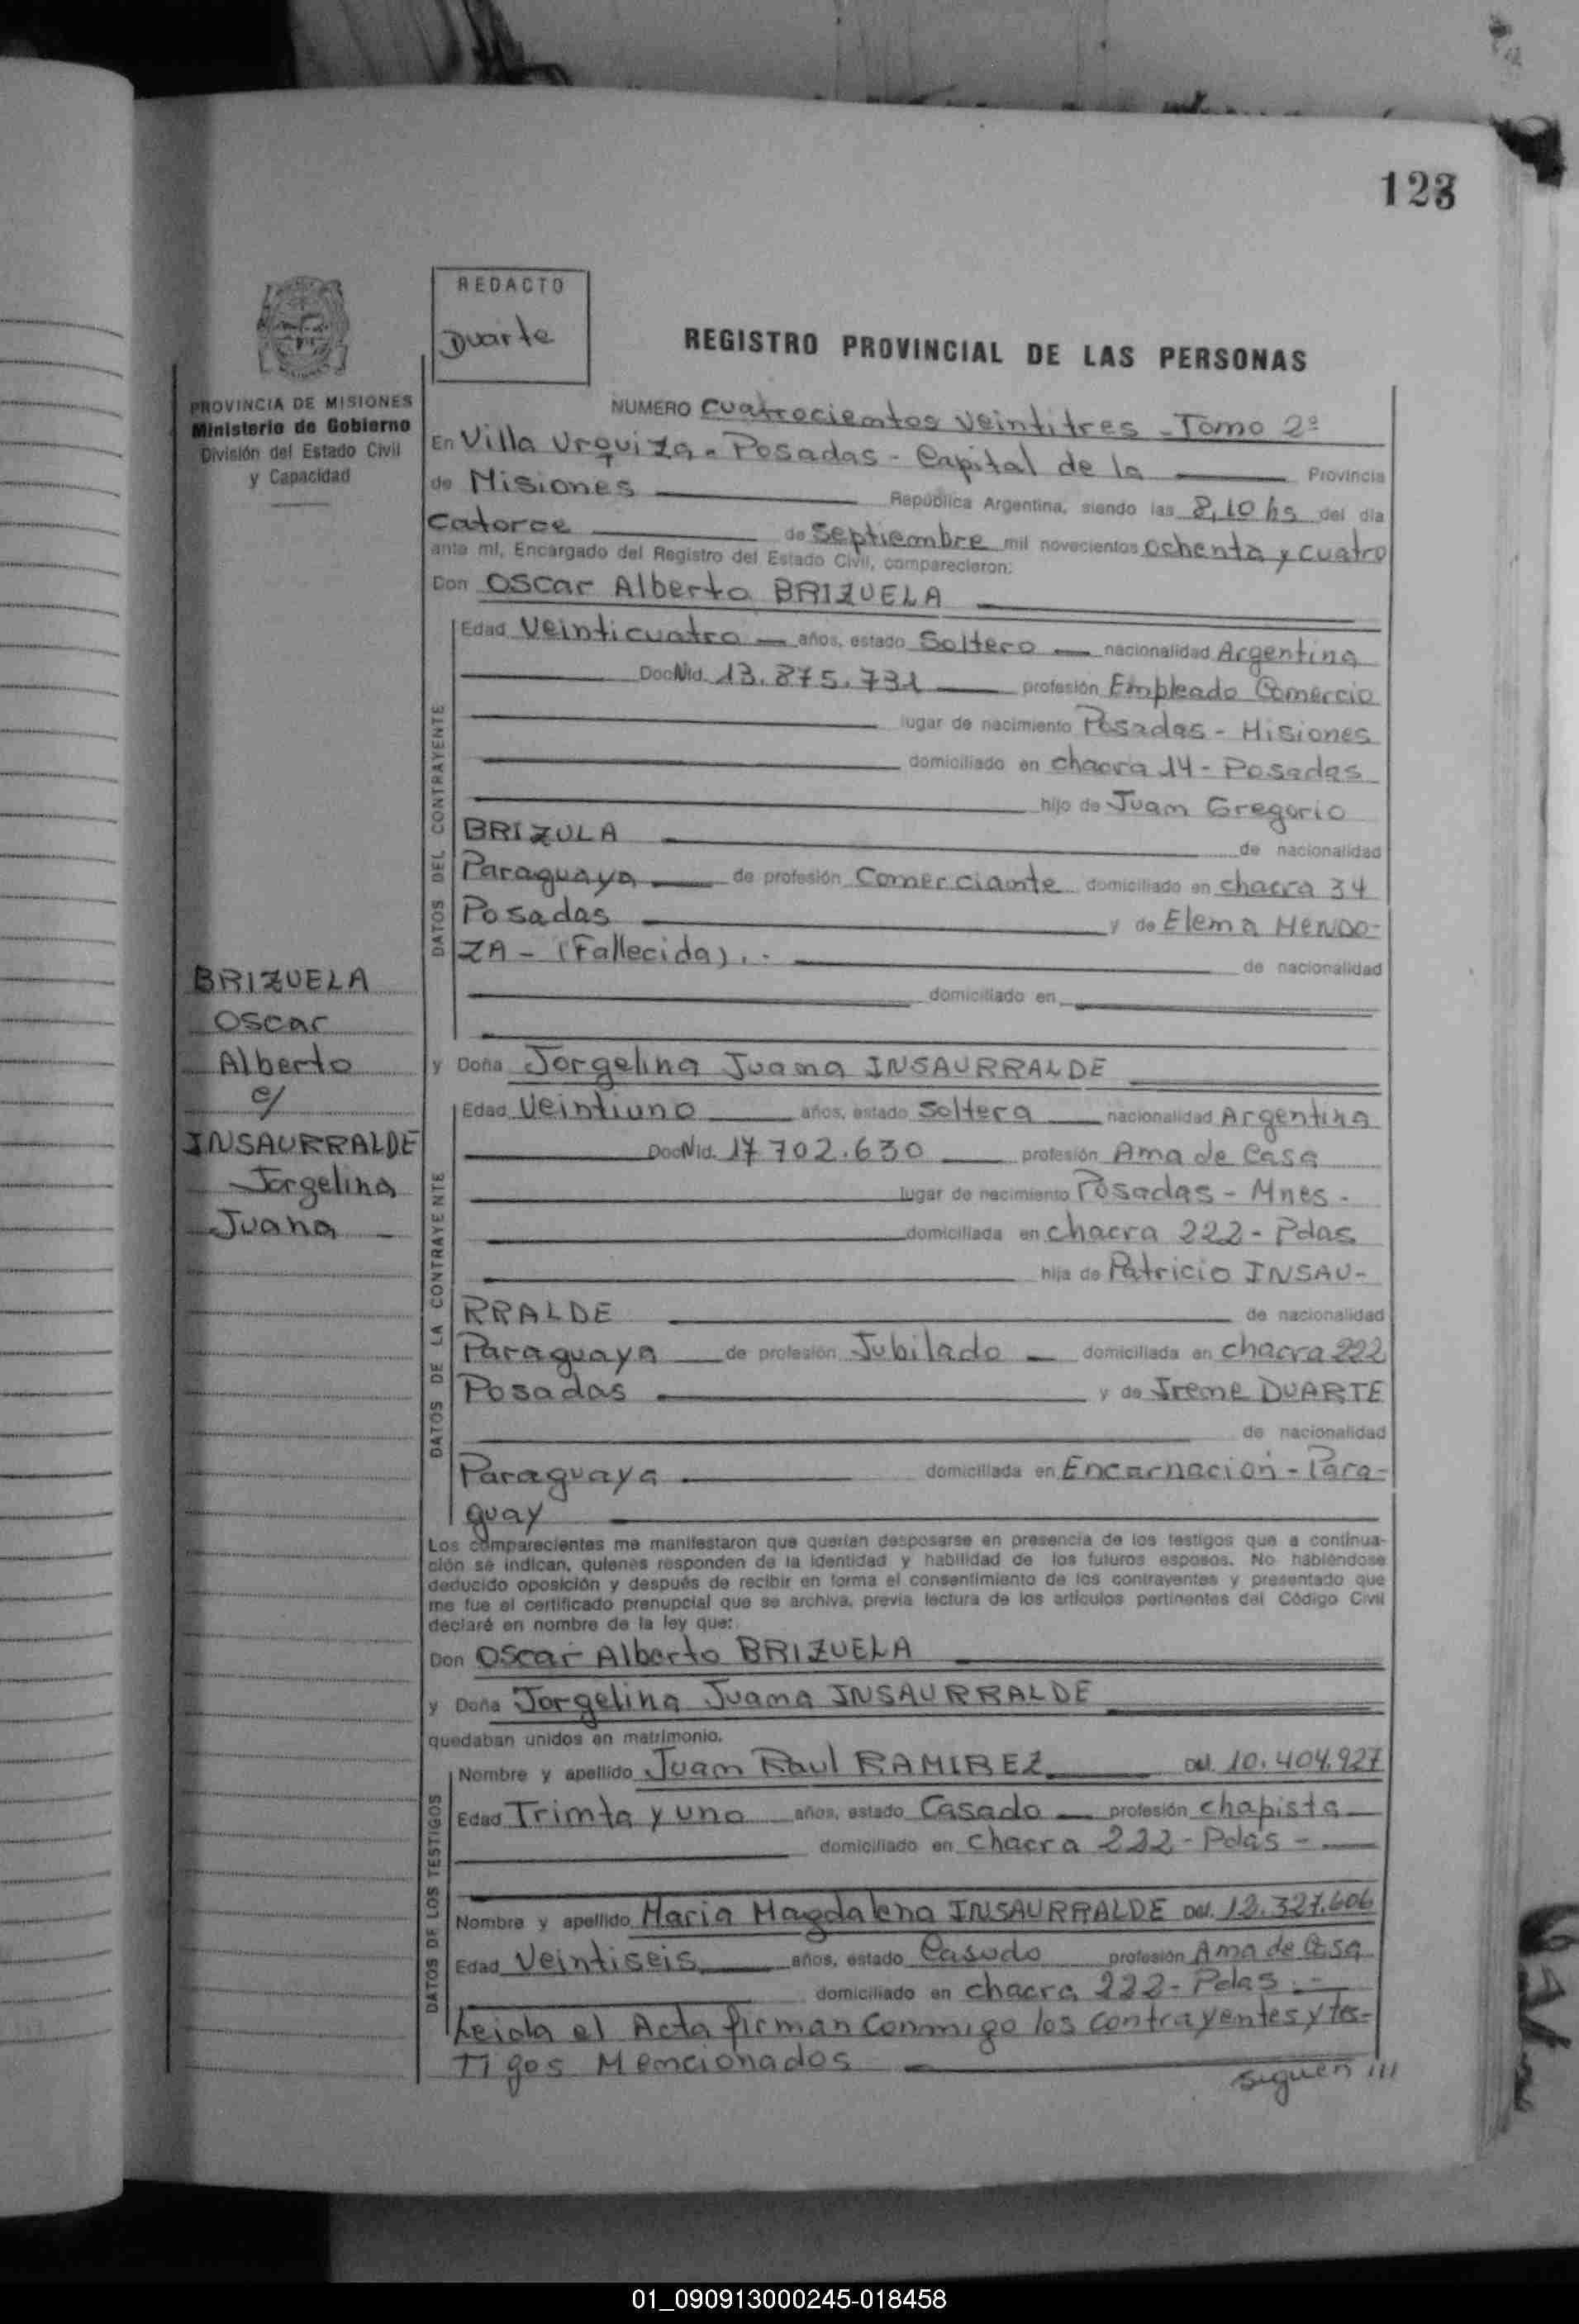 123
REDACTO
Duarte
REGISTRO PROVINCIAL DE LAS PERSONAS
PROVINCIA DE MISIONES
Ministerio de Gobierno
División del Estado Civil
y Capacidad
NUMERO cuatrocientos veintitres - Tomo 2º
En Villa Urquiza - Posadas - Capital de la Provincia
de Misiones República Argentina, siendo las 8,10 hs del día
Catorce de Septiembre mil novecientos ochenta y cuatro
ante mí, Encargado del Registro del Estado Civil, comparecieron:
Don Oscar Alberto BRIZUELA
DATOS DEL CONTRAYENTE
Edad Veinticuatro años, estado Soltero nacionalidad Argentina
Doc Nid. 13.875.731 profesión Empleado Comercio
lugar de nacimiento Posadas - Misiones
domiciliado en chacra 14 - Posadas
hijo de Juan Gregorio
BRIZULA de nacionalidad
Paraguaya de profesión Comerciante domiciliado en chacra 34
Posadas y de Elema MENDO-
ZA - (Fallecida).- de nacionalidad
domiciliado en
BRIZUELA
Oscar
Alberto
c/
INSAURRALDE
Jorgelina
Juana
y Doña Jorgelina Juana INSAURRALDE
DATOS DE LA CONTRAYENTE
Edad Veintiuno años, estado Soltera nacionalidad Argentina
Doc Nid. 17 702.630 profesión Ama de Casa
lugar de nacimiento Posadas - Mnes -
domiciliada en chacra 222 - Pdas
hija de Patricio INSAU-
RRALDE de nacionalidad
Paraguaya de profesión Jubilado domiciliada en chacra 222
Posadas y de Ireme DUARTE
de nacionalidad
Paraguaya domiciliada en Encarnación - Para-
guay
Los comparecientes me manifestaron que querían desposarse en presencia de los testigos que a continua-
ción se indican, quienes responden de la identidad y habilidad de los futuros esposos. No habiéndose
deducido oposición y después de recibir en forma el consentimiento de los contrayentes y presentado que
me fue el certificado prenupcial que se archiva, previa lectura de los artículos pertinentes del Código Civil
declaré en nombre de la ley que:
Don Oscar Alberto BRIZUELA
y Doña Jorgelina Juana INSAURRALDE
quedaban unidos en matrimonio.
DATOS DE LOS TESTIGOS
Nombre y apellido Juan Raul RAMIREZ DNI. 10.404.927
Edad Trimta y uno años, estado Casado profesión chapista
domiciliado en chacra 222 - Pdas -
Nombre y apellido Maria Magdalena INSAURRALDE DNI. 12.327.606
Edad Veintiseis años, estado Casado profesión Ama de Casa
domiciliado en chacra 222 - Pdas.-
Leida el Acta firman Conmigo los contrayentes y tes-
Tigos Mencionados
siguen ///
01_090913000245-018458